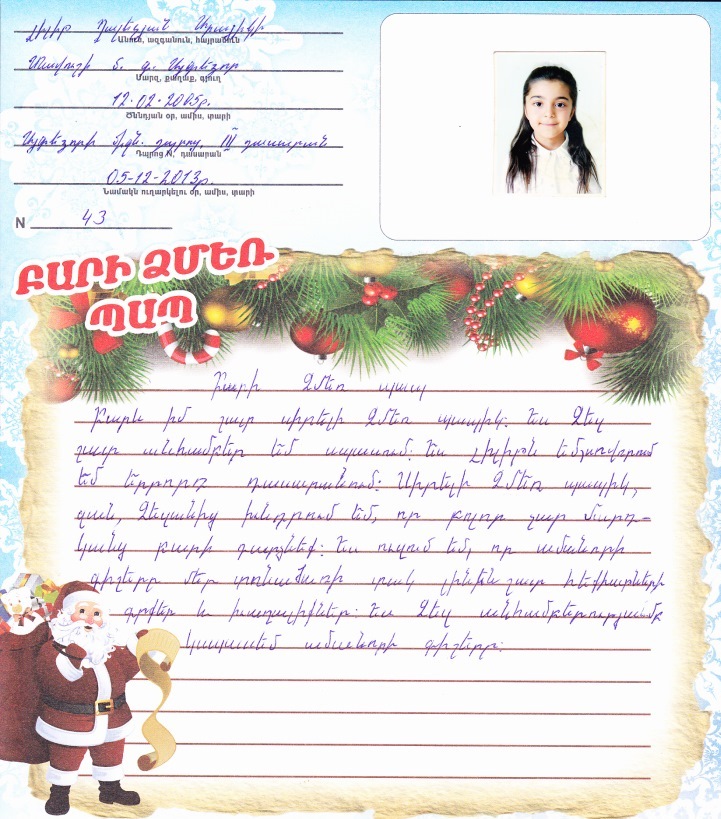 Լիլիթ Ղալեչյան Արայիկի
Անուն, ազգանուն, հայրանուն
Տավուշի մ. գ. Այգեձոր
Մարզ, քաղաք, գյուղ
12.02.2005թ.
Ծննդյան օր, ամիս, տարի
Այգեձորի միջն. դպրոց, III դասարան
Դպրոց N, դասարան
05-12-2013թ.
Նամակն ուղարկելու օր, ամիս, տարի
N 43
ԲԱՐԻ ՁՄԵՌ
ՊԱՊ
Բարի Ձմեռ պապ
Բարև իմ շատ սիրելի Ձմեռ պապիկ: Ես Ձեզ
շատ անհամբեր եմ սպասում: Ես Լիլիթն եմ, սովորում
եմ երրորդ դասարանում: Սիրելի Ձմեռ պապիկ,
ջան, Ձեզանից խնդրում եմ, որ բոլոր շատ մարդ-
կանց բարի դարձնեք: Ես ուզում եմ, որ ամանորի
գիշերը մեր տոնածառի տակ լինեն շատ հեքիաթների
գրքեր և խաղալիքներ: Ես Ձեզ անհամբերությամբ
կսպասեմ ամանորի գիշերը: